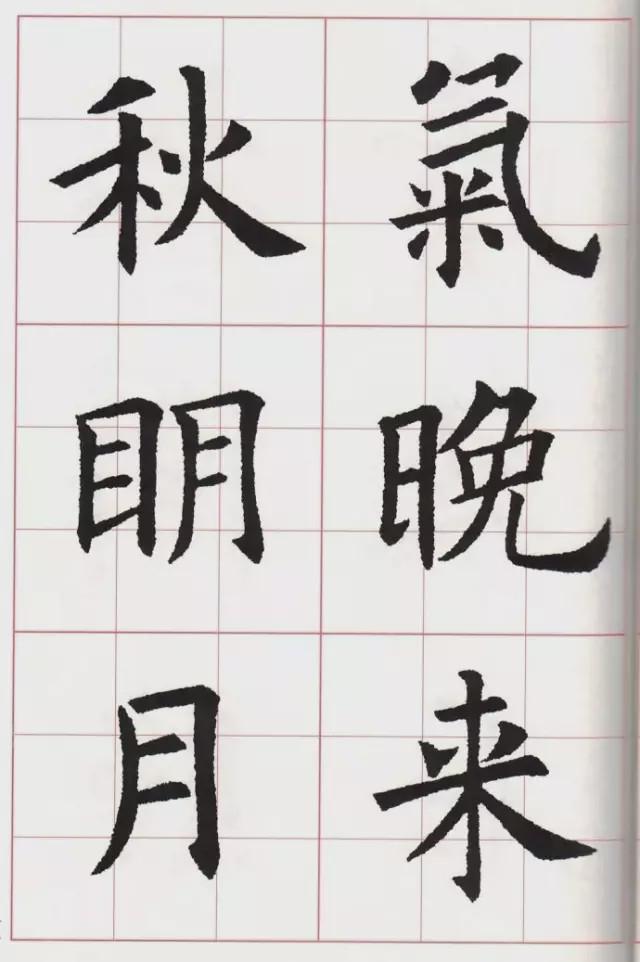 氣晚来
秋眀月